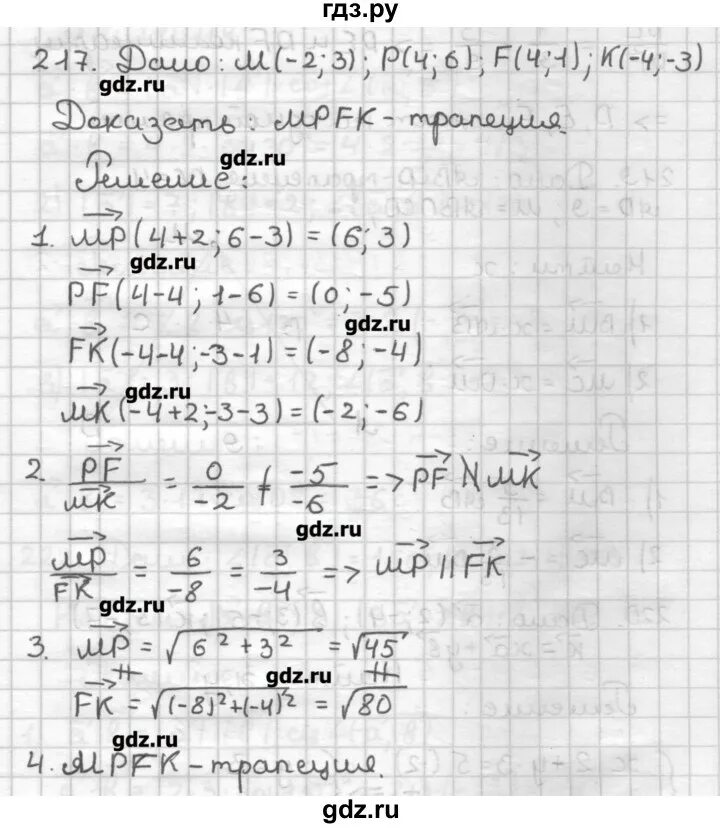 гдз.ру
217. Дано: М(-2; 3); Р(4; 6); F(4; 1); К(-4; -3)
gdz.ru
Доказать: MPFK - трапеция.
gdz.ru
Решение:
1. MP (4+2; 6-3) = (6; 3)
gdz.ru
PF (4-4; 1-6) = (0; -5)
gdz.ru
FK (-4-4; -3-1) = (-8; -4)
gdz.ru
MK (-4+2; -3-3) = (-2; -6)
2. PF/MK = 0/-2 ≠ -5/-6 => PF ∦ MK
gdz.ru
MP/FK = 6/-8 = 3/-4 => MP || FK
gdz.ru
3. MP = √6² + 3² = √45
gdz.ru
FK = √(-8)² + (-4)² = √80
gdz.ru
4. MPFK - трапеция.
gdz.ru